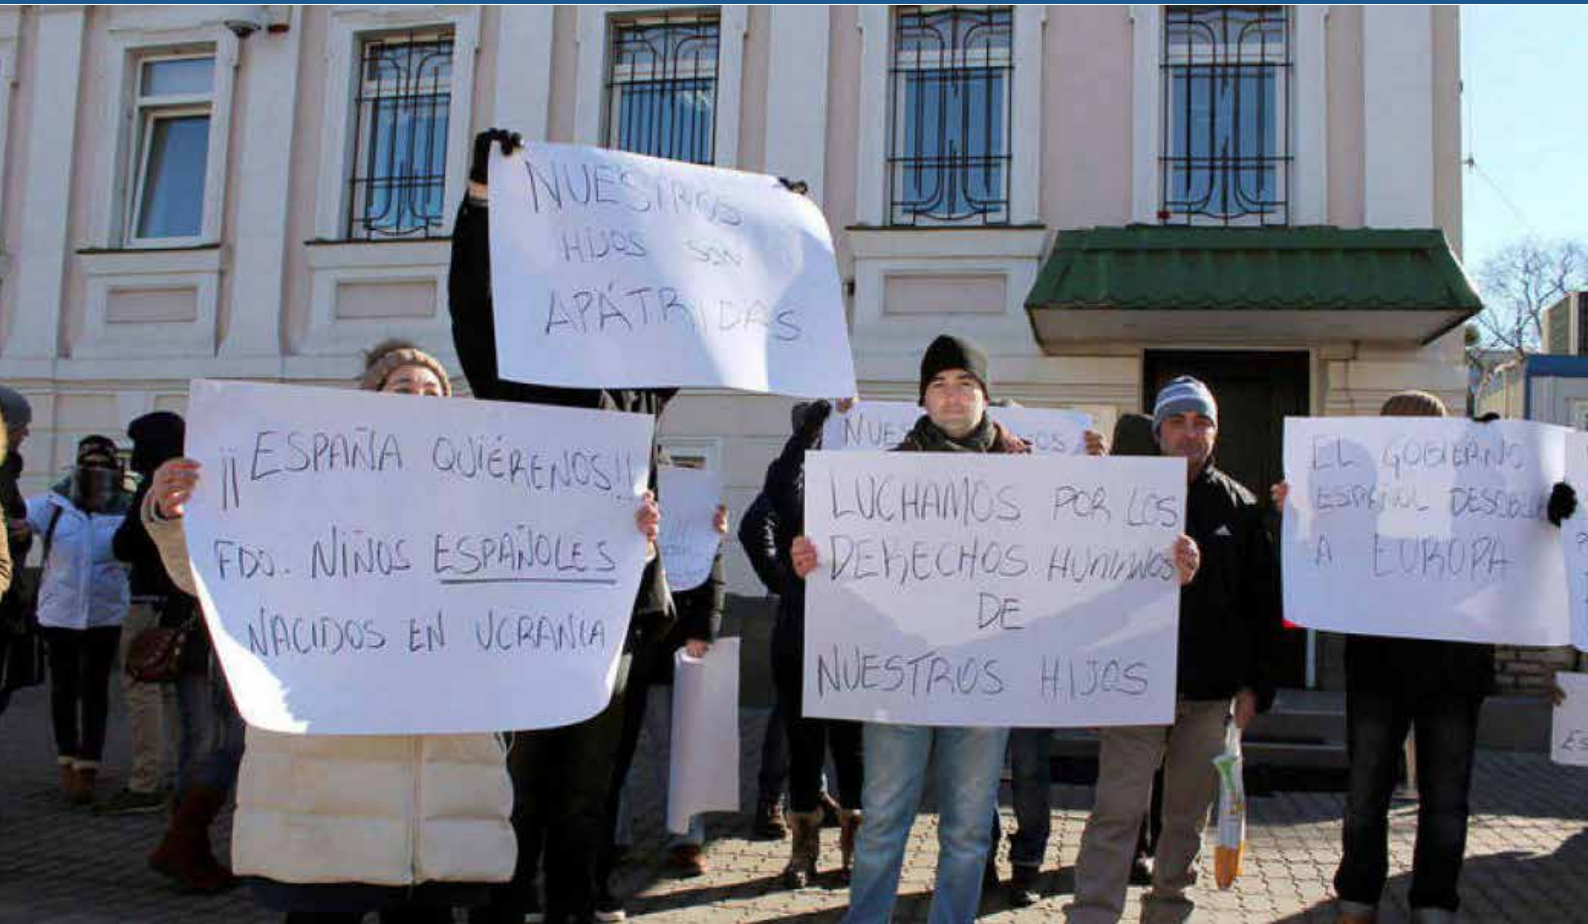 NUESTROS
HIJOS SON
APÁTRIDAS
¡¡ESPAÑA QUIÉRENOS!!
FDO. NIÑOS ESPAÑOLES
NACIDOS EN UCRANIA
LUCHAMOS POR LOS
DERECHOS HUMANOS
DE
NUESTROS HIJOS
EL GOBIERNO
ESPAÑOL DESOBEDECE
A EUROPA